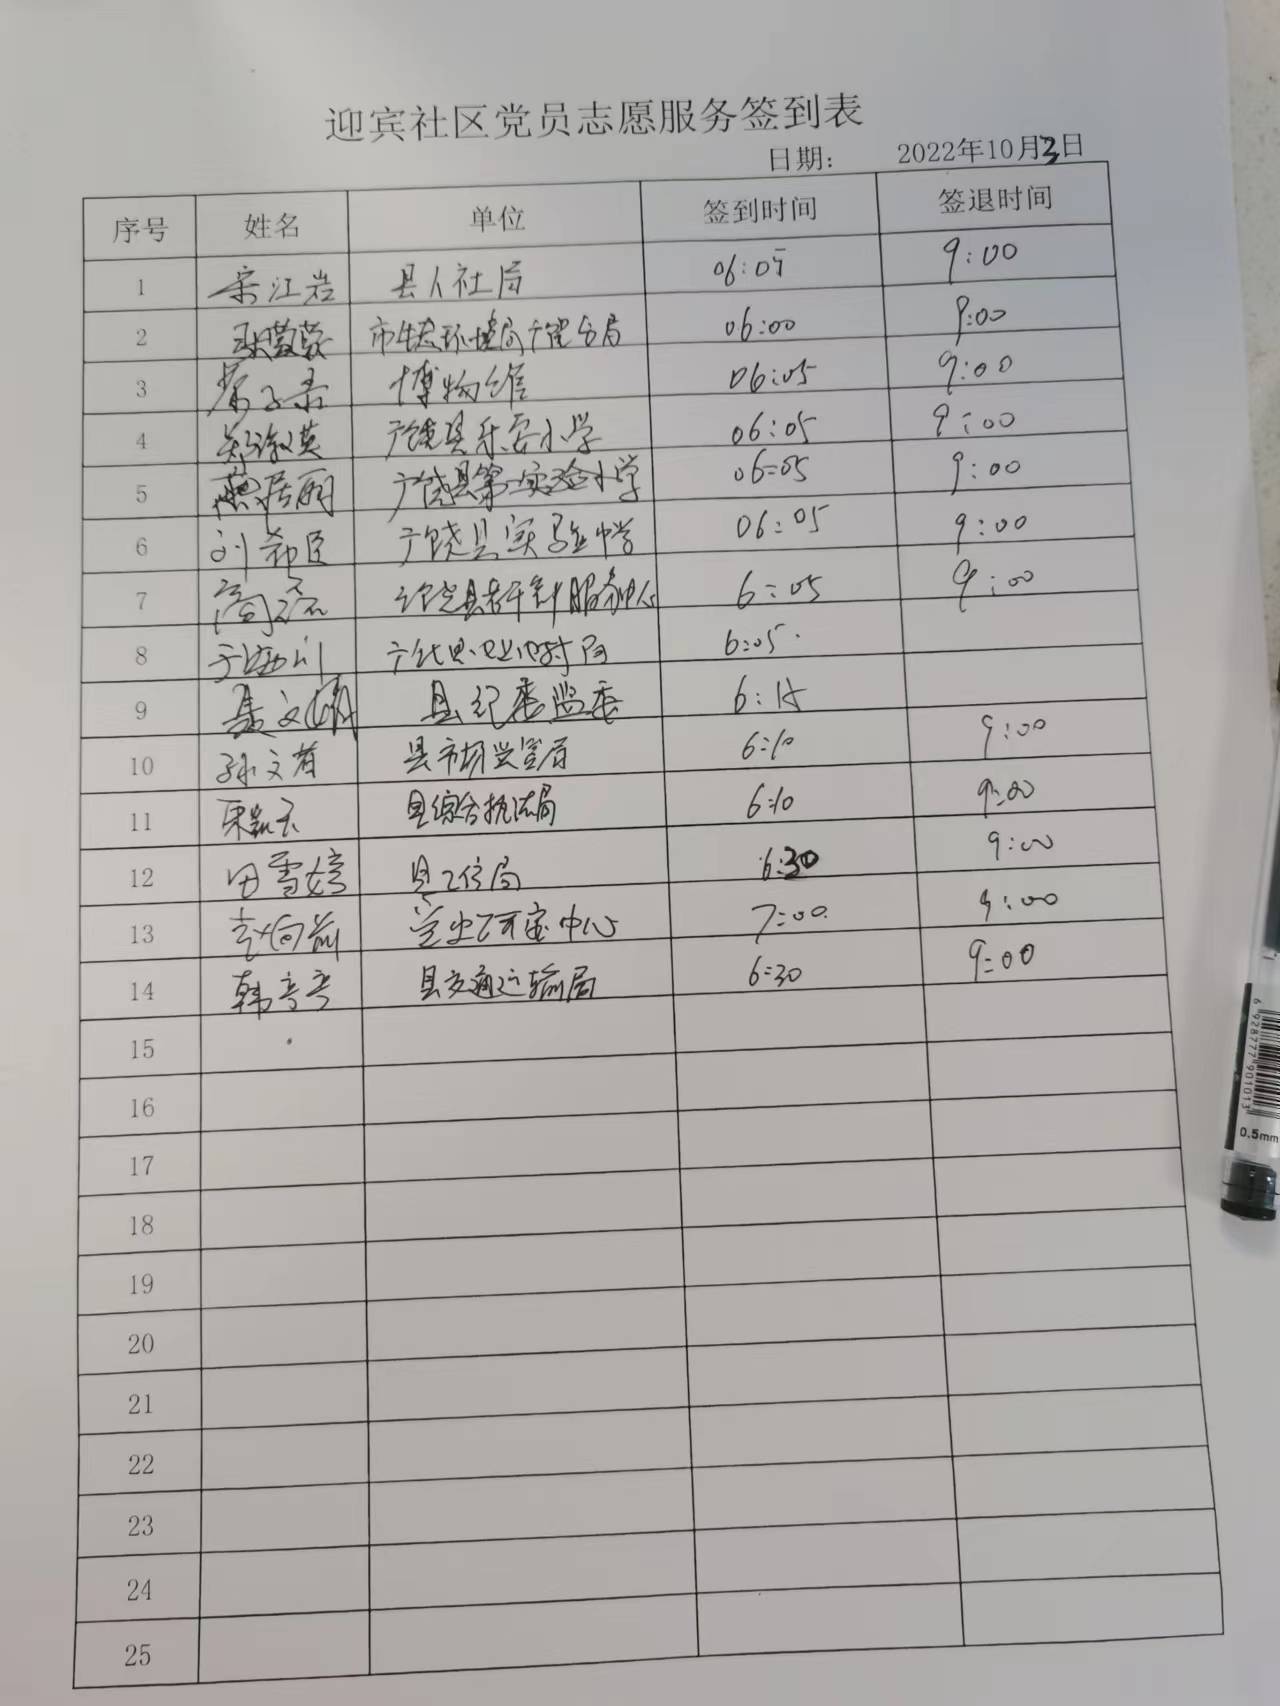 迎宾社区党员志愿服务签到表
日期: 2022年10月3日
序号 姓名 单位 签到时间 签退时间
1 宋江岩 县人社局 06:05 9:00
2 市生态环境局广饶分局 06:00 9:00
3 博物馆 06:05 9:00
4 郑淑英 广饶县乐安小学 06:05 9:00
5 燕居丽 广饶县第一实验小学 06:05 9:00
6 刘希臣 广饶县实验中学 06:05 9:00
7 广饶县老干部服务中心 6:05 9:00
8 6:05
9 聂文娟 县纪委监委 6:15
10 孙文营 县市场监管局 6:10 9:00
11 县综合执法局 6:10 9:00
12 田雪婷 县工信局 6:30 9:00
13 赵向前 党史研究中心 7:00 9:00
14 韩亮亮 县交通运输局 6:30 9:00
15
16
17
18
19
20
21
22
23
24
25
6928777901013
0.5mm